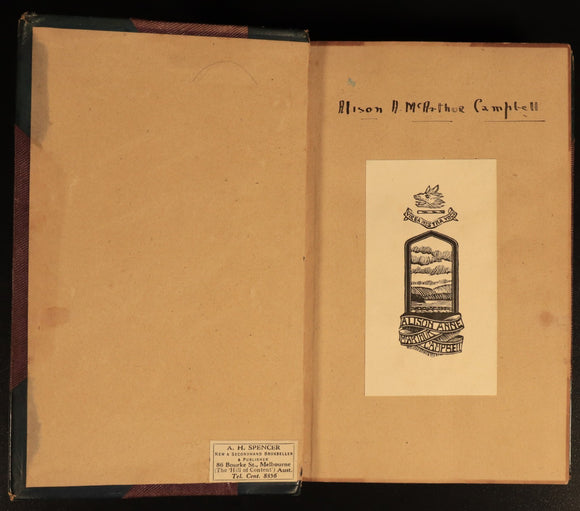 A. H. SPENCER
NEW & SECONDHAND BOOKSELLER
& PUBLISHER
86 Bourke St., Melbourne
(The 'Hill of Content') Aust.
Tel. Cent. 8356
Alison A. McArthur Campbell
ALISON ANNE
McARTHUR
CAMPBELL